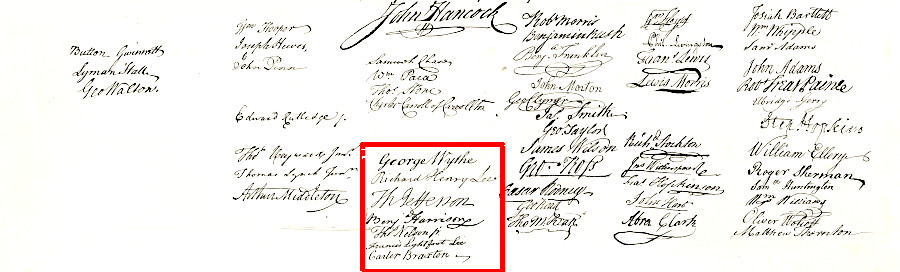 Button Gwinnett
Lyman Hall
Geo Walton.
Wm Hooper
Joseph Hewes,
John Penn
Edward Rutledge /.
Thos Heyward Junr.
Thomas Lynch Junr.
Arthur Middleton
John Hancock
Samuel Chase
Wm Paca
Thos Stone
Charles Carroll of Carrollton
George Wythe
Richard Henry Lee
Th Jefferson
Benj Harrison
Thos Nelson jr.
Francis Lightfoot Lee
Carter Braxton
Robt Morris
Benjamin Rush
Benja Franklin
John Morton
Geo Clymer
Jas Smith
Geo Taylor
James Wilson
Geo Ross
Caesar Rodney
Geo Read
Tho M:Kean
Wm Floyd
Phil. Livingston
Frans Lewis
Lewis Morris
Richd Stockton
Jno Witherspoon
Fras Hopkinson
John Hart
Abra Clark
Josiah Bartlett
Wm Whipple
Saml Adams
John Adams
Robt Treat Paine
Elbridge Gerry
Step Hopkins
William Ellery
Roger Sherman
Saml Huntington
Wm Williams
Oliver Wolcott
Matthew Thornton